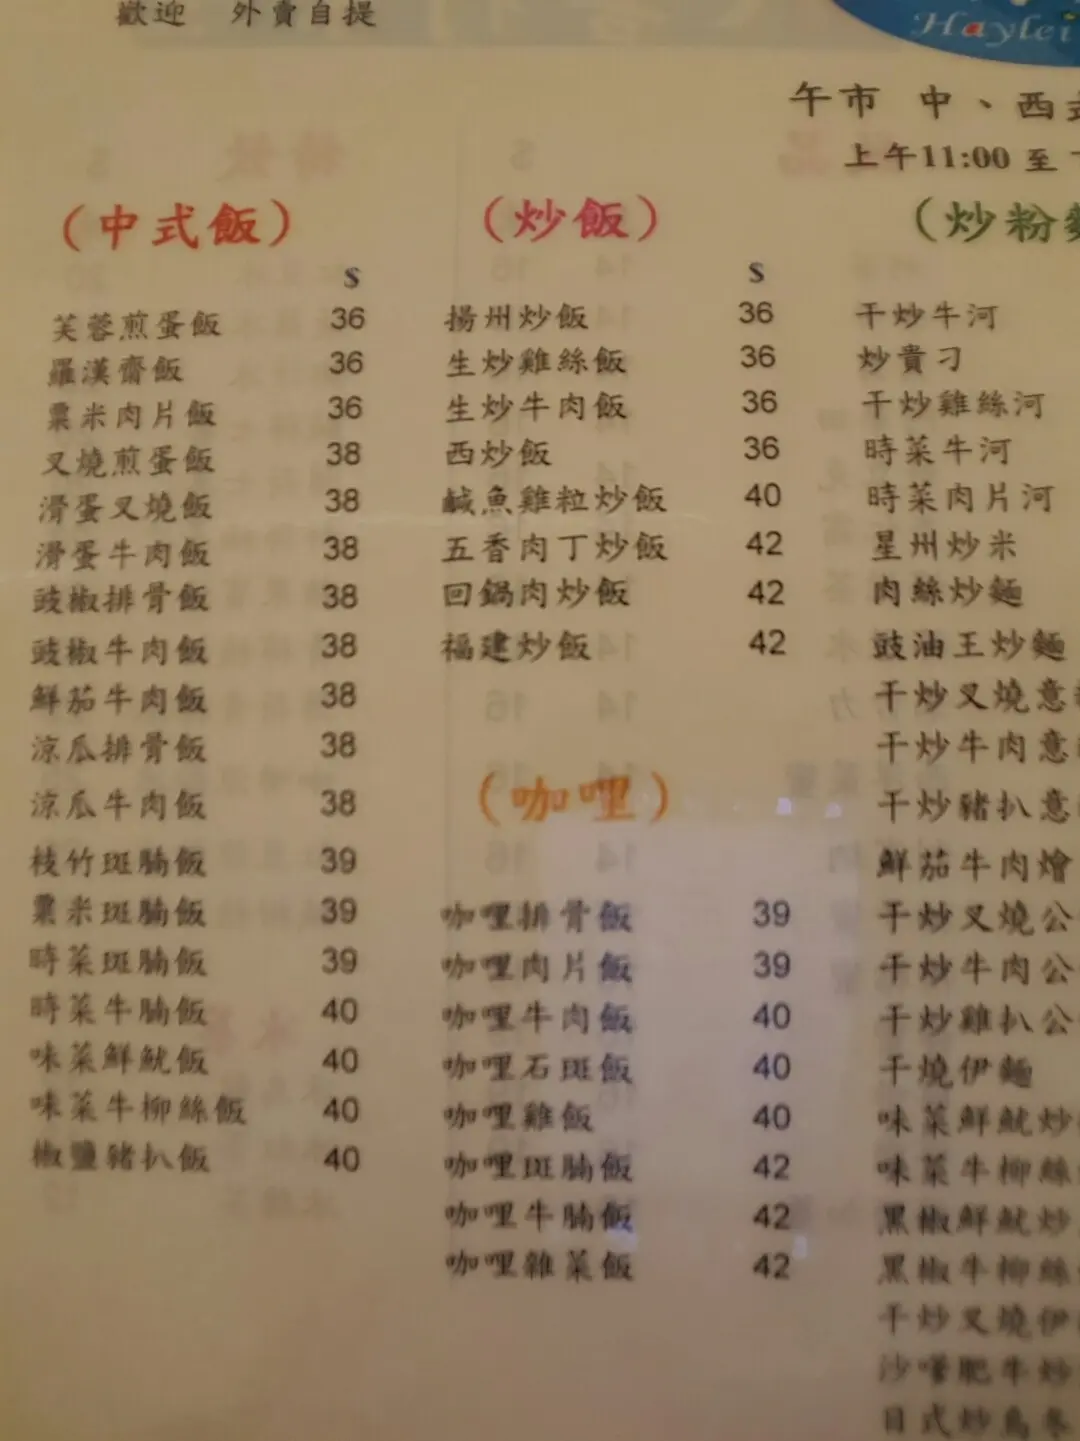 歡迎 外賣自提
Haylei
午市 中、西
上午11:00 至
(中式飯)
$
芙蓉煎蛋飯 36
羅漢齋飯 36
粟米肉片飯 36
叉燒煎蛋飯 38
滑蛋叉燒飯 38
滑蛋牛肉飯 38
豉椒排骨飯 38
豉椒牛肉飯 38
鮮茄牛肉飯 38
涼瓜排骨飯 38
涼瓜牛肉飯 38
枝竹斑腩飯 39
粟米斑腩飯 39
時菜斑腩飯 39
時菜牛腩飯 40
味菜鮮魷飯 40
味菜牛柳絲飯 40
椒鹽豬扒飯 40
(炒飯)
$
揚州炒飯 36
生炒雞絲飯 36
生炒牛肉飯 36
西炒飯 36
鹹魚雞粒炒飯 40
五香肉丁炒飯 42
回鍋肉炒飯 42
福建炒飯 42
(咖哩)
咖哩排骨飯 39
咖哩肉片飯 39
咖哩牛肉飯 40
咖哩石斑飯 40
咖哩雞飯 40
咖哩斑腩飯 42
咖哩牛腩飯 42
咖哩雜菜飯 42
(炒粉
干炒牛河
炒貴刁
干炒雞絲河
時菜牛河
時菜肉片河
星州炒米
肉絲炒麵
豉油王炒麵
干炒叉燒意
干炒牛肉意
干炒豬扒意
鮮茄牛肉燴
干炒叉燒公
干炒牛肉公
干炒雞扒公
干燒伊麵
味菜鮮魷炒
味菜牛柳絲
黑椒鮮魷炒
黑椒牛柳絲
干炒叉燒伊
沙嗲肥牛炒
日式炒烏冬